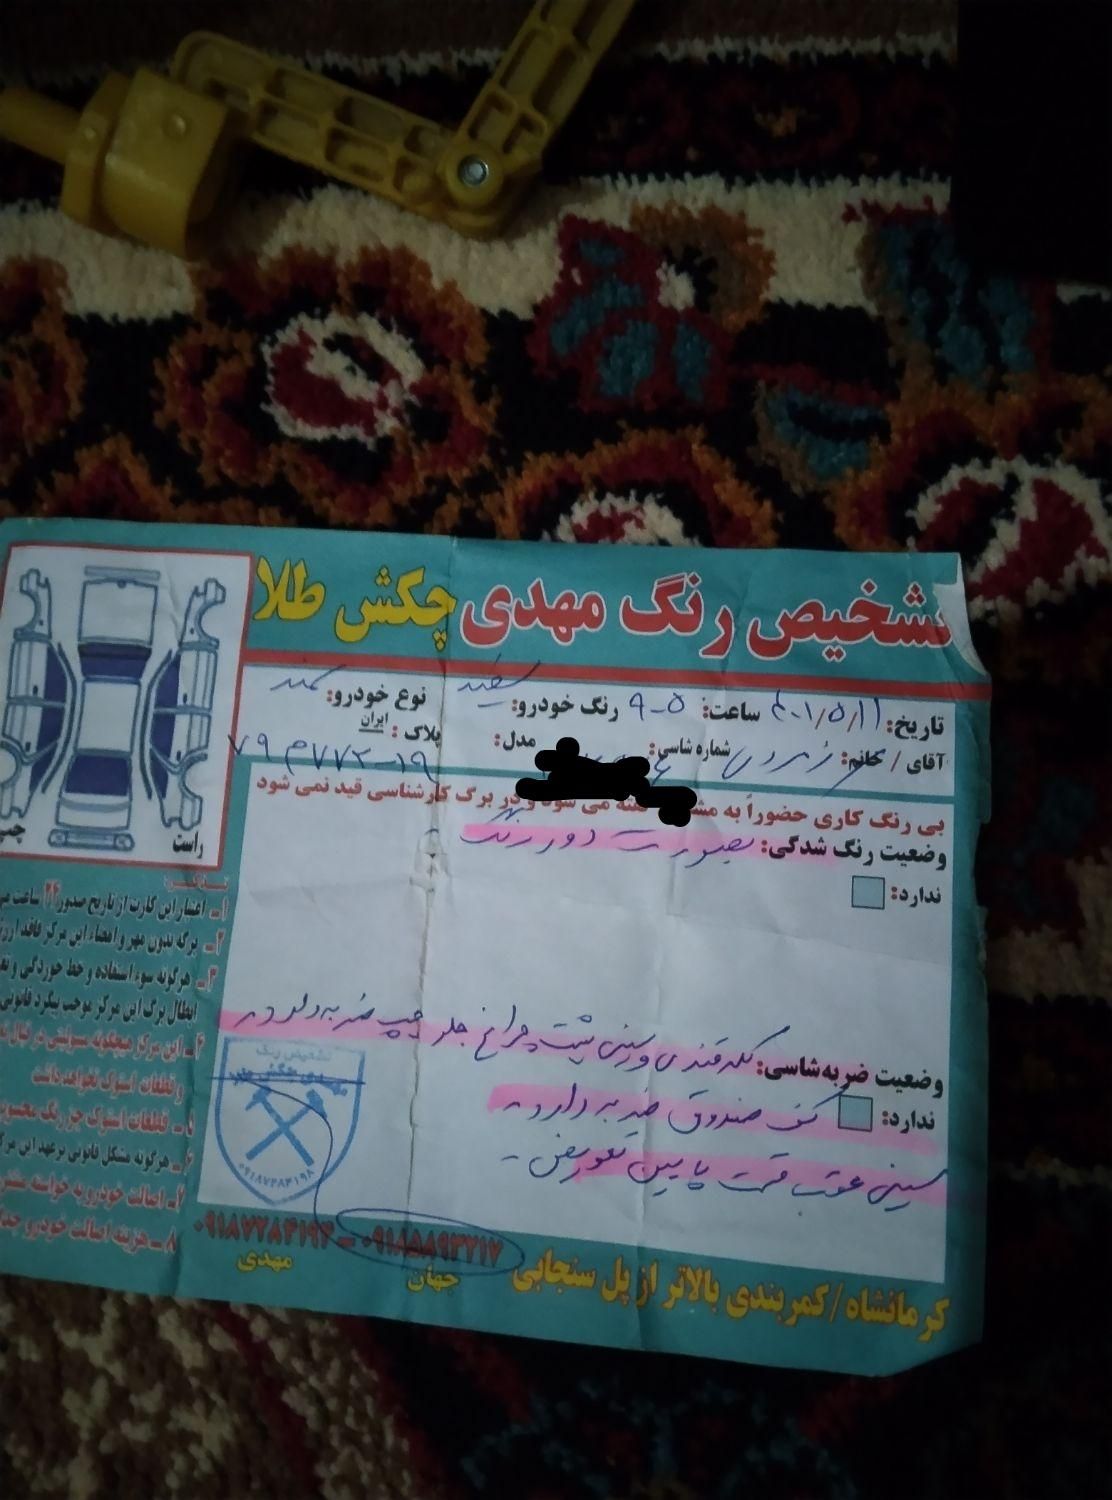 تشخیص رنگ مهدی چکش طلا
تاریخ: ۴۰۱/۵/۱۱ ساعت: ۹-۵ رنگ خودرو: سفید نوع خودرو: سمند
آقای / خانم: شماره شاسی: مدل: پلاک: ایران
بی رنگ کاری حضوراً به گفته می شود و در برگ کارشناسی قید نمی شود
وضعیت رنگ شدگی: بصورت دور رنگ
ندارد:
وضعیت ضربه شاسی: گلدقندی و سینی پشت چراغ جلو چپ ضربه دارد
ندارد: کف صندوق ضربه دارد
سینی عقب قسمت پایین تعویض
راست
چپ
۱ـ اعتبار این کارت از تاریخ صدور ۲۴ ساعت
۲ـ برگه بدون مهر و امضاء این مرکز فاقد
۳ـ هرگونه سوء استفاده و خط خوردگی و
ابطال برگ این مرکز موجب پیگرد قانونی
۴ـ این مرکز هیچگونه مسئولیتی در قبال
و قطعات استوک نخواهد داشت
۵ـ قطعات استوک جز رنگ
۶ـ هرگونه مشکل قانونی بر عهد این
۷ـ اصالت خودرو به خواسته
۸ـ هزینه اصالت خودرو
تشخیص رنگ
۰۹۱۸۷۲۸۴۱۹۸
۰۹۱۸۵۸۹۳۲۱۷ ـ ۰۹۱۸۷۲۸۴۱۹۴
جهان مهدی
کرمانشاه / کمربندی بالاتر از پل سنجابی